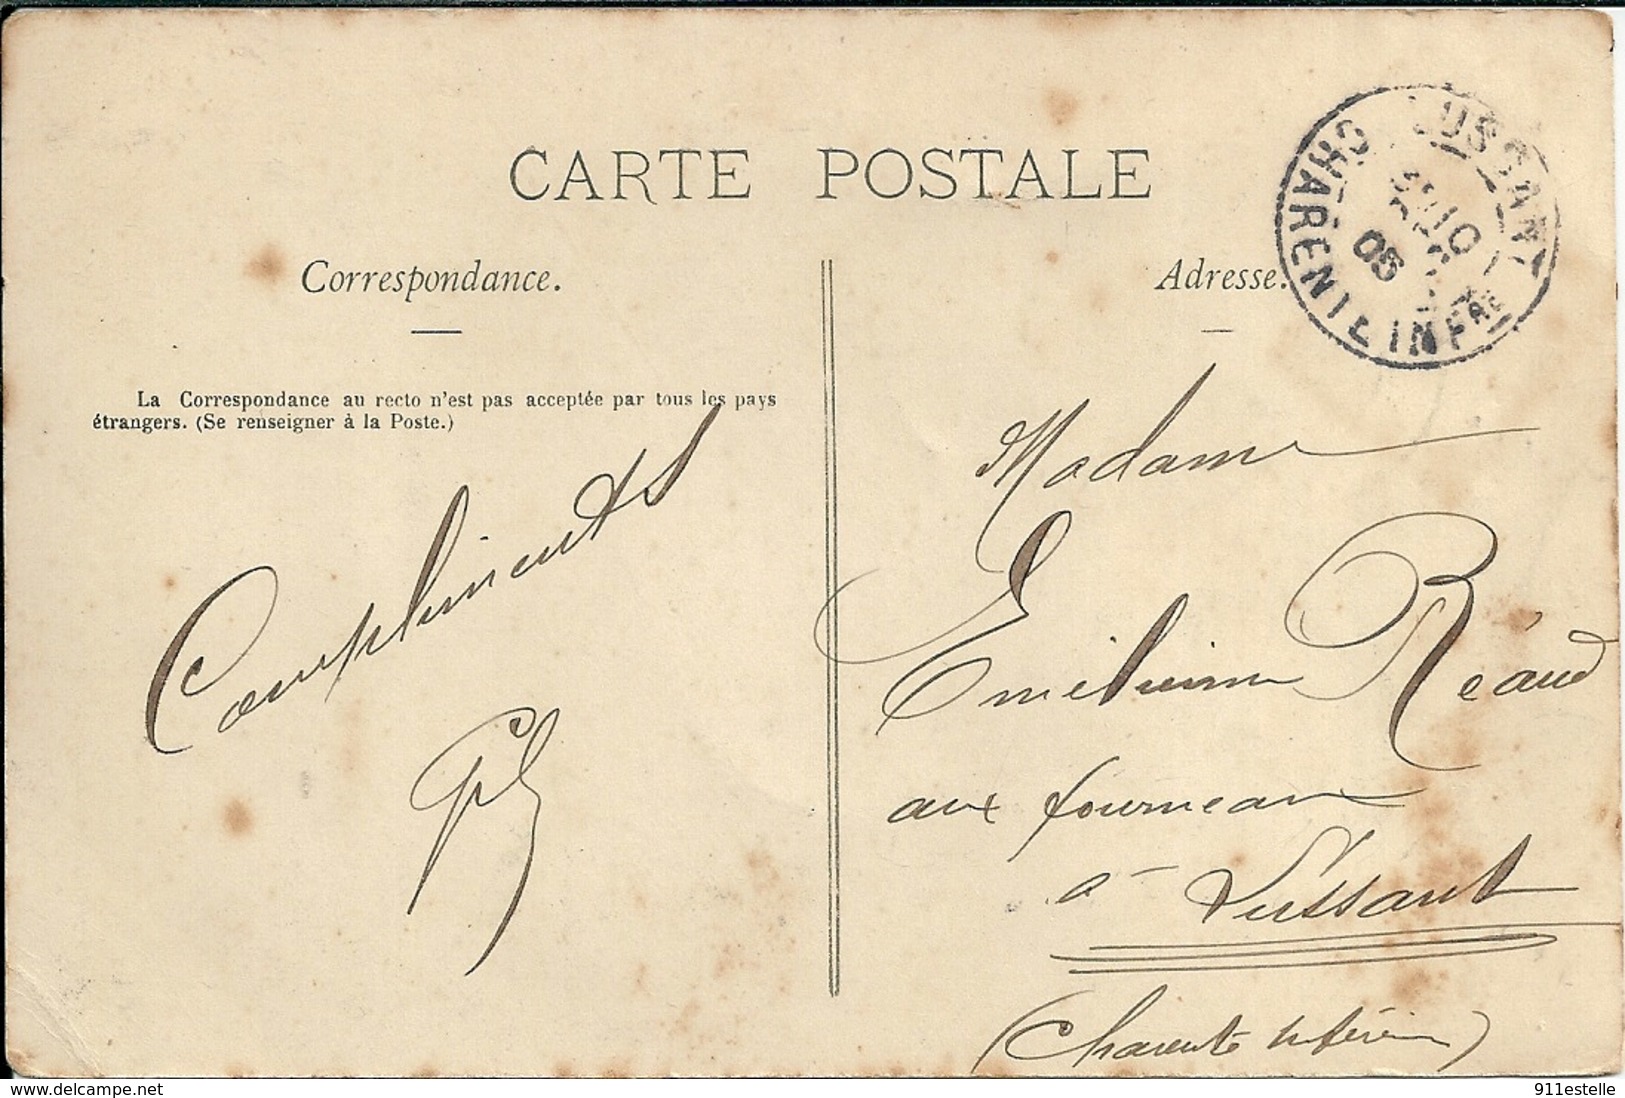 CARTE POSTALE
Correspondance.
Adresse.
LUSSANT
CHARENTE INFRE
10
05
La Correspondance au recto n'est pas acceptée par tous les pays
étrangers. (Se renseigner à la Poste.)
Compliments
Madame
Réaud
aux fourneaux
à Lussant
(Charente Inférieure)
delcampe.net
911estelle